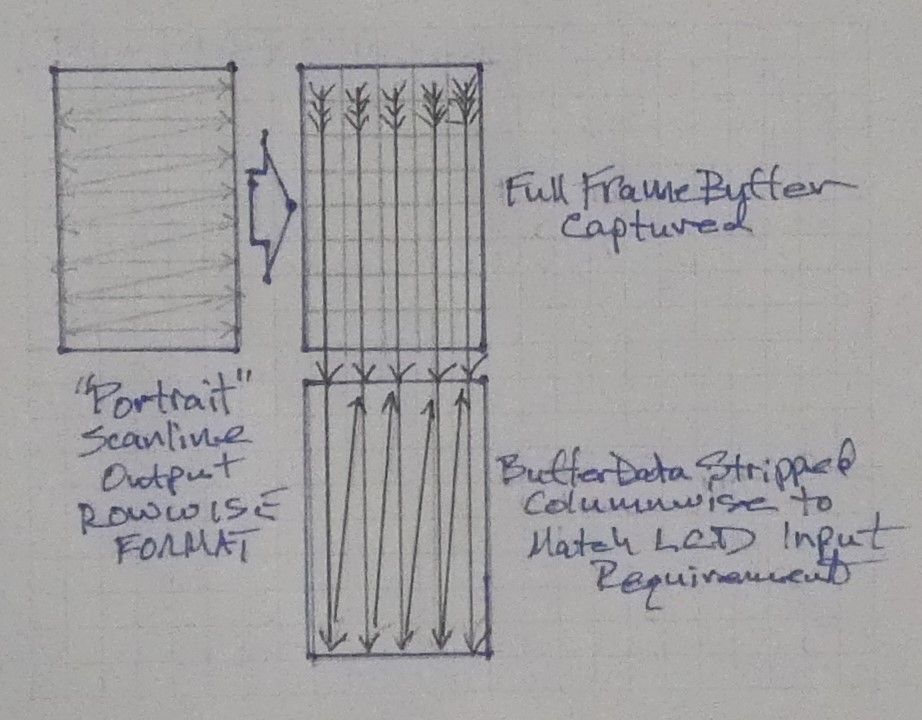 Full Frame Buffer
Captured
"Portrait"
Scanline
Output
ROWWISE
FORMAT
Buffer Data Stripped
Columnwise to
Match LCD Input
Requirement